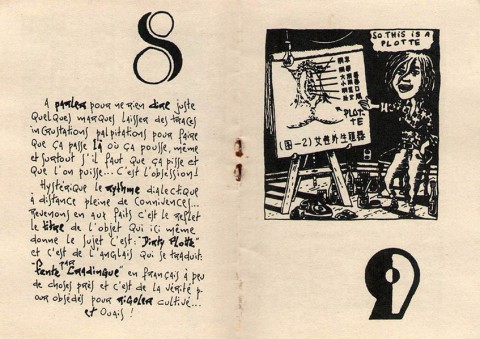 8
A parler pour ne rien dire juste
quelques marques laisser des traces
incrustations palpitations pour faire
que ça passe là où ça pousse, même
et surtout s'il faut que ça pisse et
que l'on puisse... c'est l'obsession !
Hystérique le rythme dialectique
à distance pleine de connivences...
Revenons en aux faits c'est le reflet
le titre de l'objet qui ici même
donne le sujet c'est: "Dirty Plotte"
et c'est de l'anglais qui se traduit:
"Fente Cradingue" en français à peu
de choses près et c'est de la vérité p
our obsédés pour rigoler cultivé...
et Ouais !
SO THIS IS A
PLOTTE
PLOT-
TE
(图-2) 女性外生殖器
9